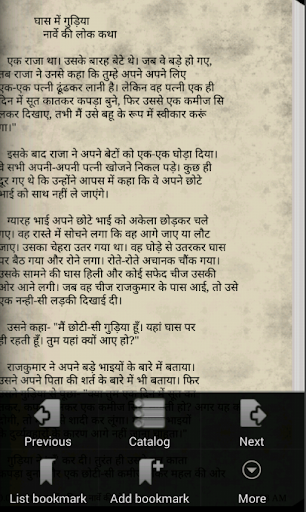 घास में गुड़िया
नार्वे की लोक कथा
एक राजा था। उसके बारह बेटे थे। जब वे बड़े हो गए,
तब राजा ने उनसे कहा कि तुम्हे अपने अपने लिए
एक-एक पत्नी ढूंढकर लानी है। लेकिन वह पत्नी एक ही
दिन में सूत कातकर कपड़ा बुने, फिर उससे एक कमीज सि
लकर दिखाए, तभी मैं उसे बहू के रूप में स्वीकार करूं
गा।"
इसके बाद राजा ने अपने बेटों को एक-एक घोड़ा दिया।
वे सभी अपनी-अपनी पत्नी खोजने निकल पड़े। कुछ ही
दूर गए थे कि उन्होंने आपस में कहा कि वे अपने छोटे
भाई को साथ नहीं ले जाएंगे।
ग्यारह भाई अपने छोटे भाई को अकेला छोड़कर चले
गए। वह रास्ते में सोचने लगा कि वह आगे जाए या लौट
जाए। उसका चेहरा उतर गया था। वह घोड़े से उतरकर घास
पर बैठ गया और रोने लगा। रोते-रोते अचानक चौंक गया।
उसके सामने की घास हिली और कोई सफेद चीज उसकी
ओर आने लगी। जब वह चीज राजकुमार के पास आई, तो उसे
एक नन्ही-सी लड़की दिखाई दी।
उसने कहा- "मैं छोटी-सी गुड़िया हूँ। यहां घास पर
ही रहती हूँ। तुम यहां क्यों आए हो?"
राजकुमार ने अपने बड़े भाइयों के बारे में बताया।
उसने अपने पिता की शर्त के बारे में भी बताया। फिर
Previous
Catalog
Next
List bookmark
Add bookmark
More
AM